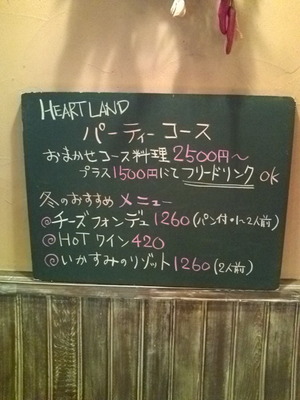 HEARTLAND
パーティーコース
おまかせコース料理 2500円〜
プラス 1500円にて フリードリンク OK
冬のおすすめ メニュー
◎チーズフォンデュ 1260 (パン付•1〜2人前)
◎HOT ワイン 420
◎いかすみのリゾット 1260 (2人前)